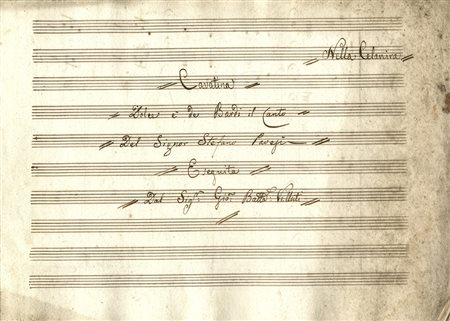 Nella Celanira
Cavatina
Dolce è de Bardi il Canto
Del Signor Stefano Pavesi
Eseguita
Dal Sigr. Gio. Batta. Velluti